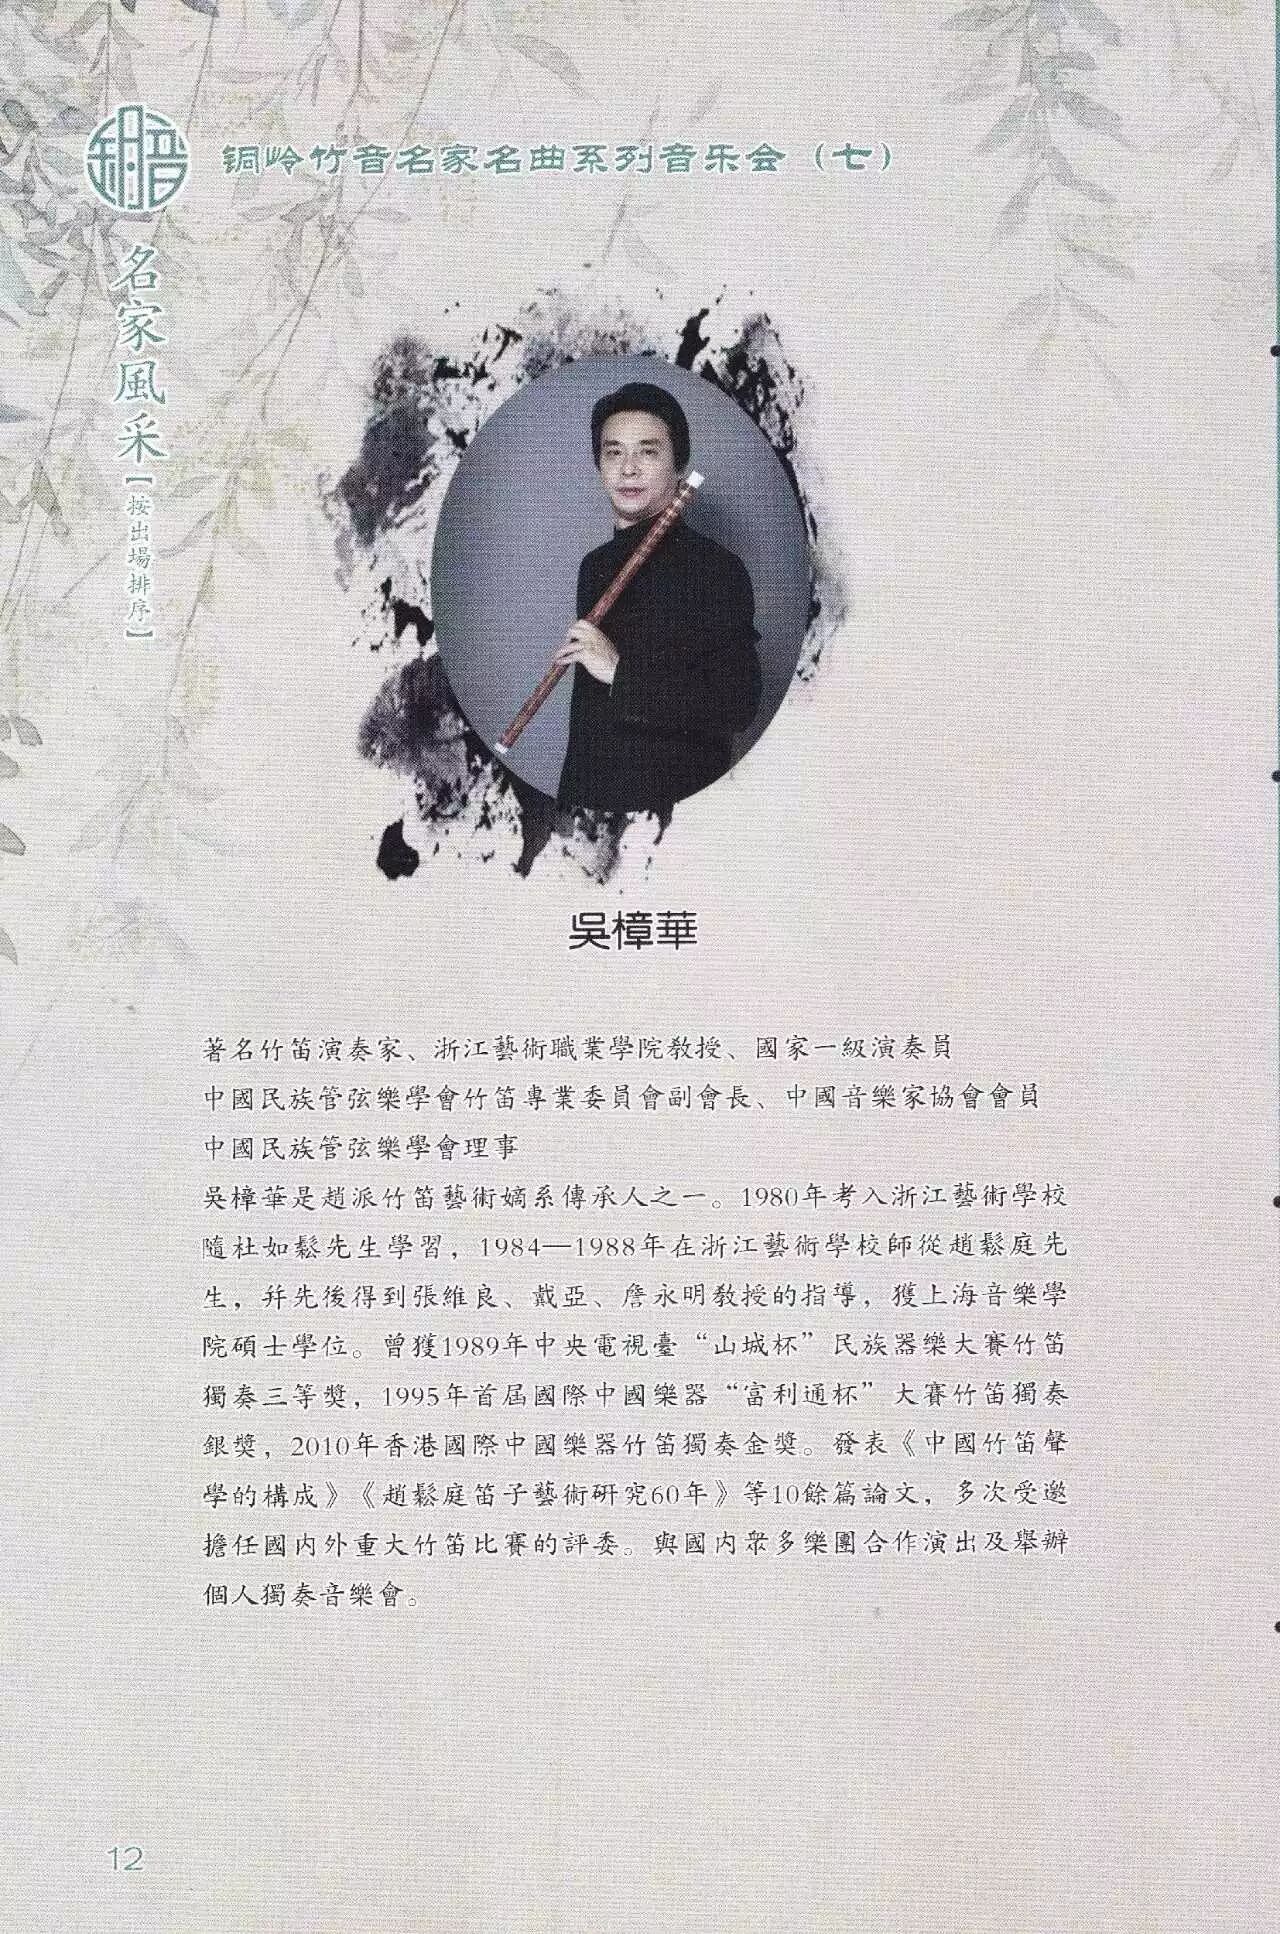 铜岭竹音名家名曲系列音乐会（七）
名家風采【按出場排序】
吳樟華
著名竹笛演奏家、浙江藝術職業學院教授、國家一級演奏員
中國民族管弦樂學會竹笛專業委員會副會長、中國音樂家協會會員
中國民族管弦樂學會理事
吳樟華是趙派竹笛藝術嫡系傳承人之一。1980年考入浙江藝術學校
隨杜如鬆先生學習，1984—1988年在浙江藝術學校師從趙鬆庭先
生，并先後得到張維良、戴亞、詹永明教授的指導，獲上海音樂學
院碩士學位。曾獲1989年中央電視臺“山城杯”民族器樂大賽竹笛
獨奏三等獎，1995年首届國際中國樂器“富利通杯”大賽竹笛獨奏
銀獎，2010年香港國際中國樂器竹笛獨奏金獎。發表《中國竹笛聲
學的構成》《趙鬆庭笛子藝術研究60年》等10餘篇論文，多次受邀
擔任國内外重大竹笛比賽的評委。與國内衆多樂團合作演出及舉辦
個人獨奏音樂會。
12